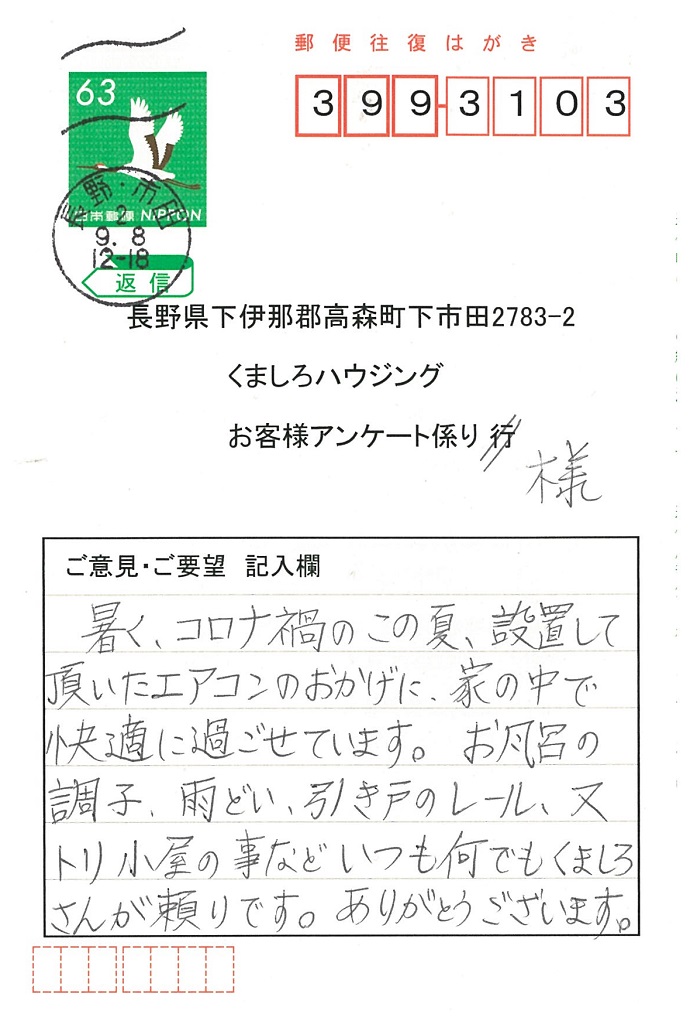 郵便往復はがき
63
399-3103
日本郵便 NIPPON
長野・市田
2
9.8
12-18
返信
長野県下伊那郡高森町下市田2783-2
くましろハウジング
お客様アンケート係り 行
様
ご意見・ご要望 記入欄
暑く、コロナ禍のこの夏、設置して
頂いたエアコンのおかげに、家の中で
快適に過ごせています。お風呂の
調子、雨どい、引き戸のレール、又
トリ小屋の事などいつも何でもくましろ
さんが頼りです。ありがとうございます。